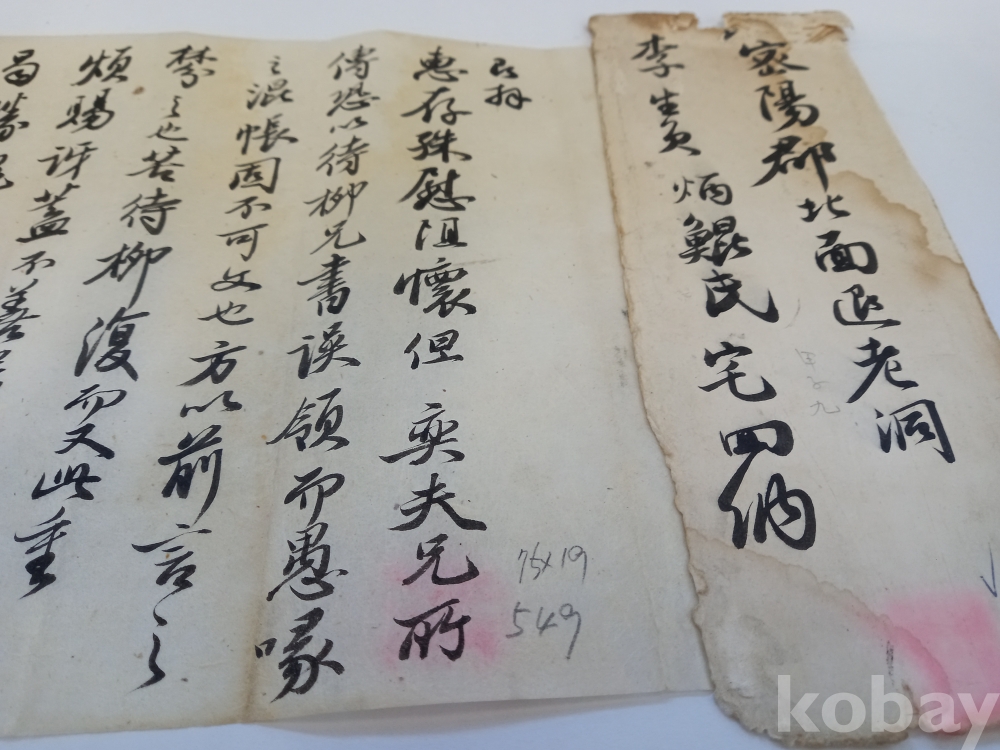 密陽郡北面退老洞
李生員炳鯤氏宅回納
拜
惠存殊慰阻懷但 奕夫兄所
傳恐以待柳兄書誤領而愚喙
之混帳固不可文也方以前言之
禁之也苦待柳復而又此重
煩賜評蓋不善
75x19
549
kobay